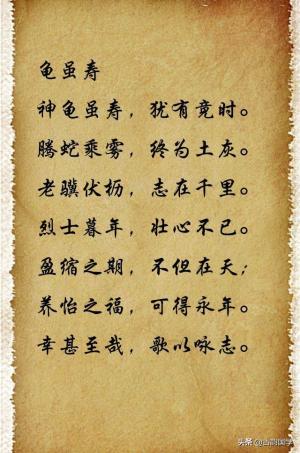 龟虽寿
神龟虽寿，犹有竟时。
腾蛇乘雾，终为土灰。
老骥伏枥，志在千里。
烈士暮年，壮心不已。
盈缩之期，不但在天；
养怡之福，可得永年。
幸甚至哉，歌以咏志。
头条 @古韵国学